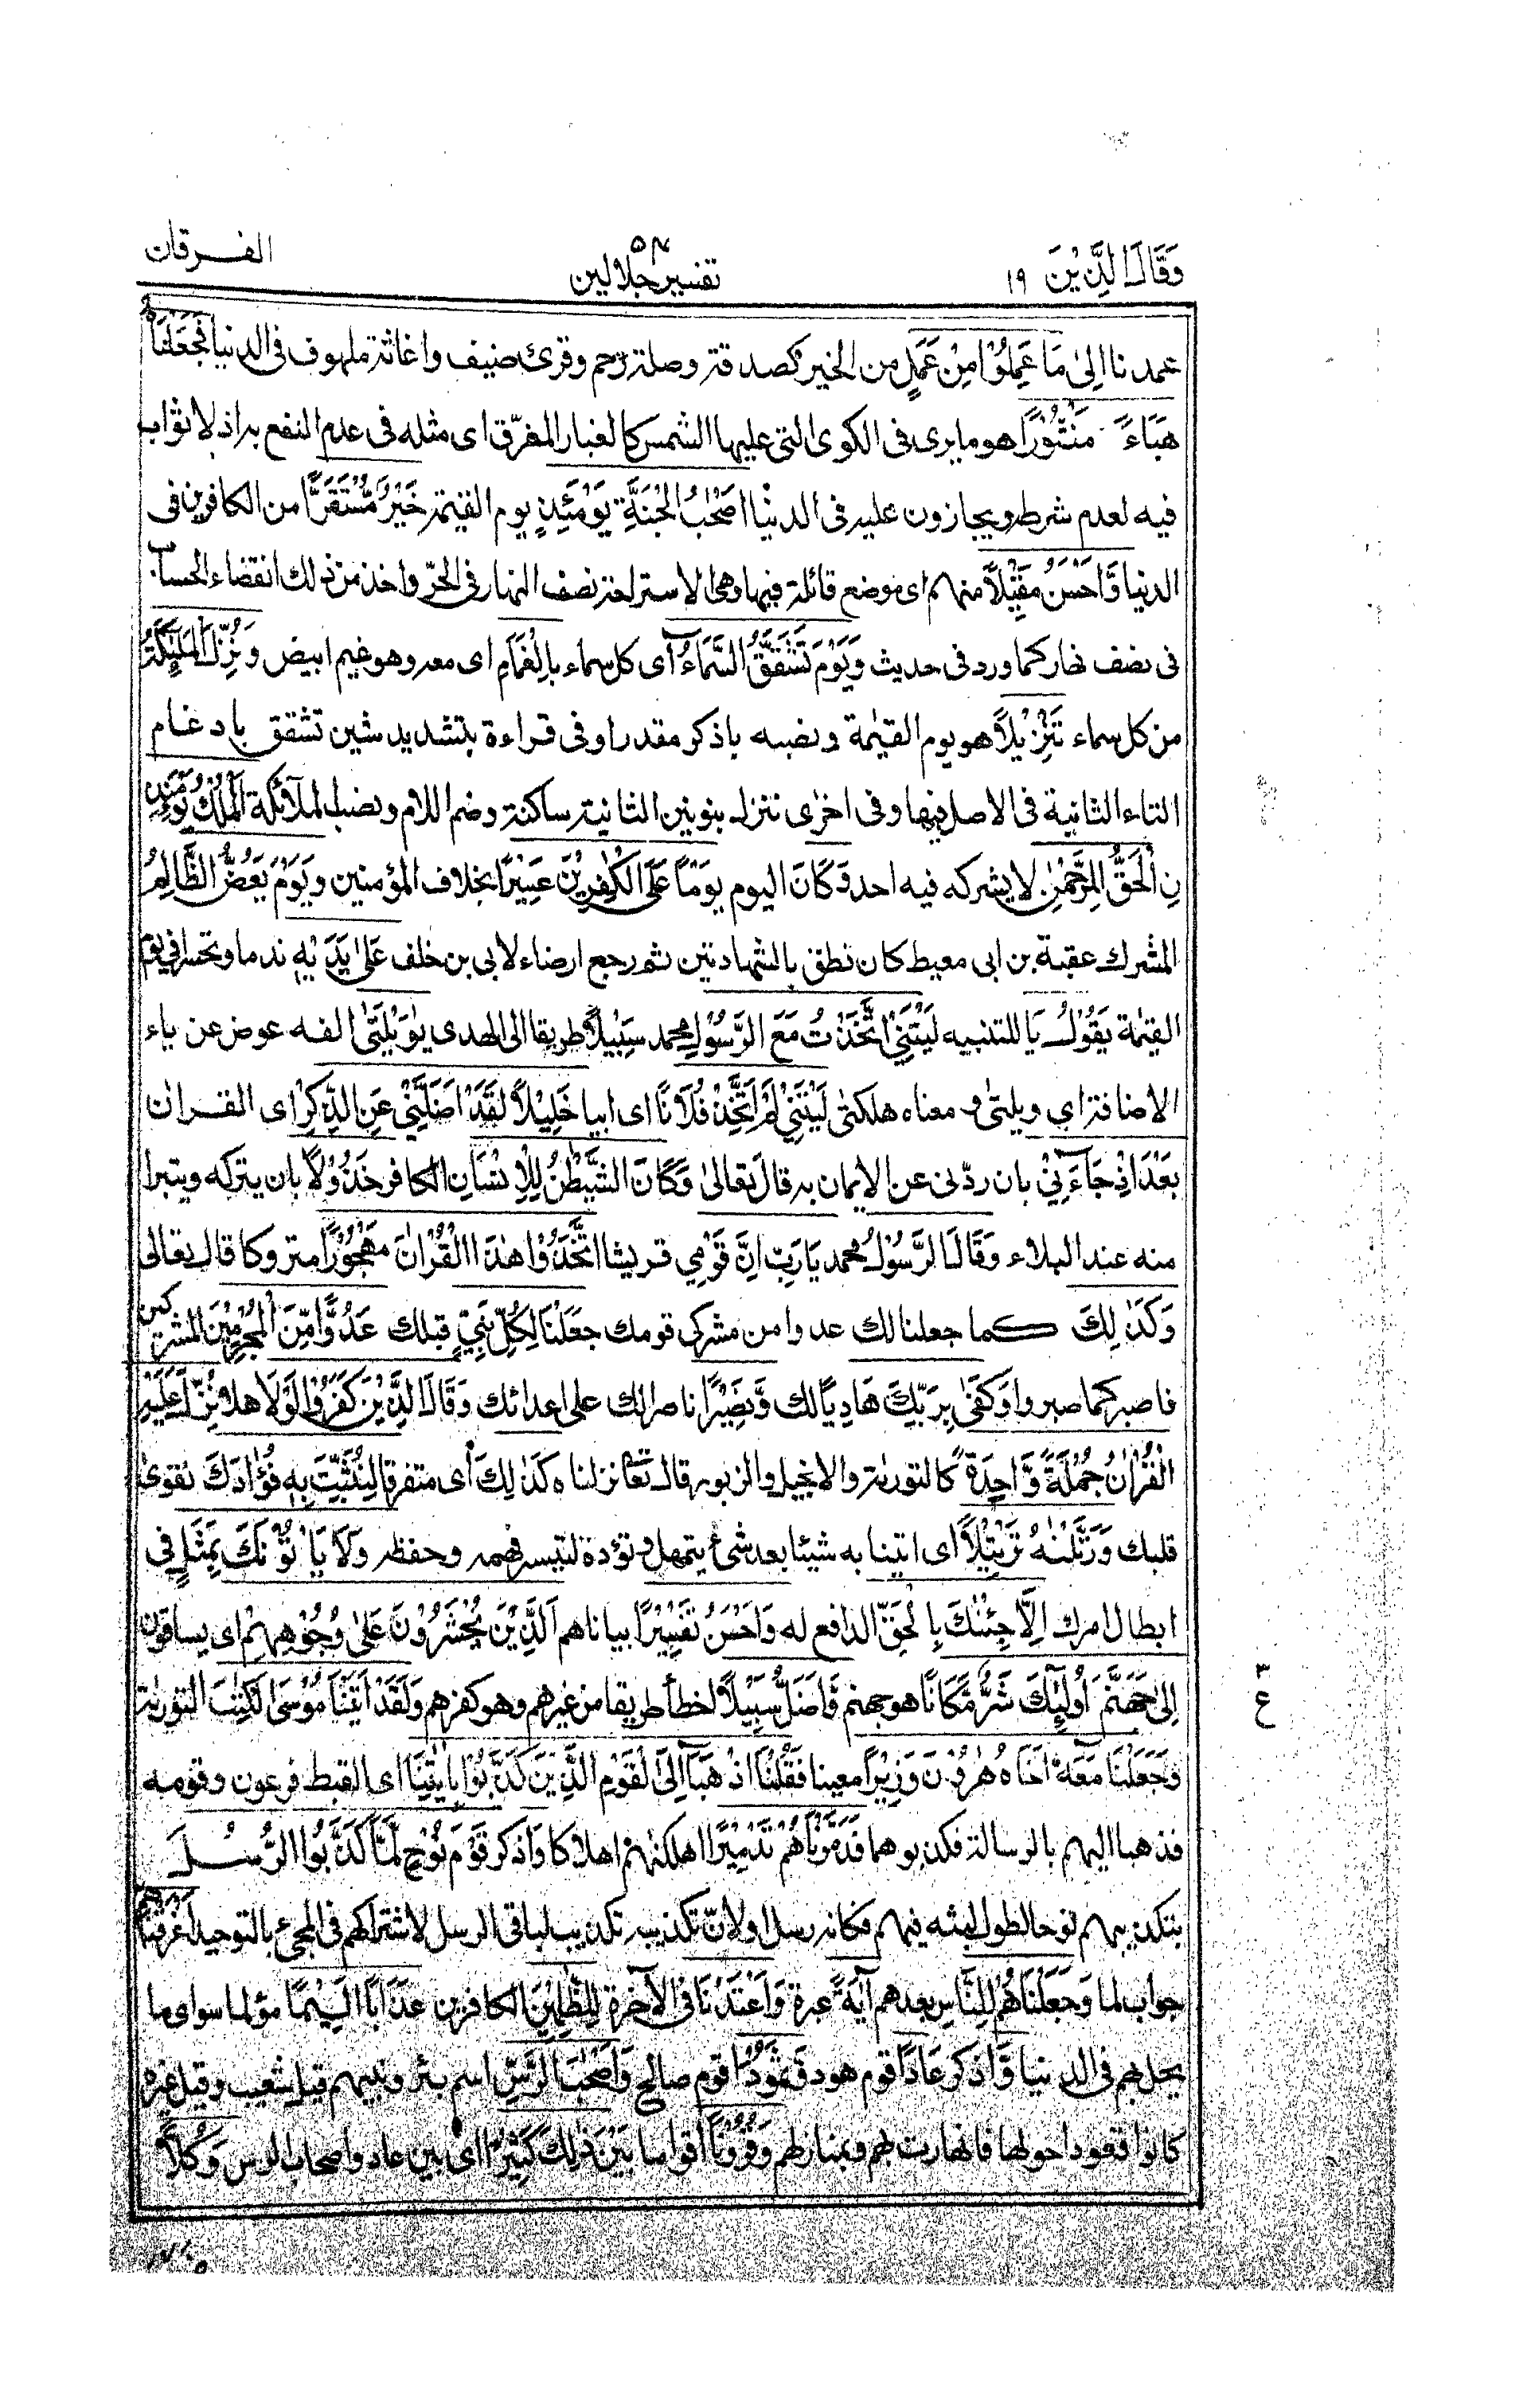 وَقَالَ الَّذِيْنَ ١٩
٥٤
تفسير جلالين
الفرقان
عمدنا اِلىٰ مَا عَمِلُوْا مِنْ عَمَلٍ من الخير كصدقة وصلة رحم وقرى ضيف واغاثة ملهوف فى الدنيا فَجَعَلْنٰهُ
هَبَاءً مَنْثُوْرًا هو ما يرى فى الكوى التى عليها الشمس كالغبار المفرّق اى مثله فى عدم النفع به اذ لا ثواب
فيه لعدم شرطه ويجازون عليه فى الدنيا اَصْحٰبُ الْجَنَّةِ يَوْمَئِذٍ يوم القيٰمة خَيْرٌ مُّسْتَقَرًّا من الكافرين فى
الدنيا وَّاَحْسَنُ مَقِيْلًا منهم اى موضع قائلة فيها وهى الاستراحة نصف النهار فى الحرّ واخذ من ذلك انقضاء الحساب
فى نصف نهار كما ورد فى حديث وَيَوْمَ تَشَقَّقُ السَّمَآءُ اى كل سماء بِالْغَمَامِ اى معه وهو غيم ابيض وَنُزِّلَ الْمَلٰٓئِكَةُ
من كل سماء تَنْزِيْلًا هو يوم القيٰمة ونصبه باذكر مقدرا وفى قراءة بتشديد شين تشقق بادغام
التاء الثانية فى الاصل فيها وفى اخرى ننزل بنونين الثانية ساكنة وضم اللام ونصب الملآئكة اَلْمُلْكُ يَوْمَئِذِ
نِ الْحَقُّ لِلرَّحْمٰنِ لا يشركه فيه احد وَكَانَ اليوم يَوْمًا عَلَى الْكٰفِرِيْنَ عَسِيْرًا بخلاف المؤمنين وَيَوْمَ يَعَضُّ الظَّالِمُ
المشرك عقبة بن ابى معيط كان نطق بالشهادتين ثم رجع ارضاء لابى بن خلف عَلىٰ يَدَيْهِ ندما وتحسرا فى يوم
القيٰمة يَقُوْلُ يَا للتنبيه لَيْتَنِى اتَّخَذْتُ مَعَ الرَّسُوْلِ محمد سَبِيْلًا طريقا الى الهدى يٰوَيْلَتىٰ الفه عوض عن ياء
الاضافة اى ويلتى ومعناه هلكتى لَيْتَنِىْ لَمْ اَتَّخِذْ فُلَانًا اى ابيا خَلِيْلًا لَقَدْ اَضَلَّنِىْ عَنِ الذِّكْرِ اى القران
بَعْدَ اِذْ جَآءَنِىْ بان ردّنى عن الايمان به قال تعالىٰ وَكَانَ الشَّيْطٰنُ لِلْاِنْسَانِ الكافر خَذُوْلًا بان يتركه ويتبرا
منه عند البلاء وَقَالَ الرَّسُوْلُ محمد يَارَبِّ اِنَّ قَوْمِى قريشا اتَّخَذُوْا هٰذَا الْقُرْاٰنَ مَهْجُوْرًا متروكا قال تعالى
وَكَذٰلِكَ كما جعلنا لك عدوا من مشركى قومك جَعَلْنَا لِكُلِّ نَبِىٍّ قبلك عَدُوًّا مِّنَ الْمُجْرِمِيْنَ المشركين
فاصبر كما صبروا وَكَفٰى بِرَبِّكَ هَادِيًا لك وَّنَصِيْرًا ناصرا لك على اعدائك وَقَالَ الَّذِيْنَ كَفَرُوْا لَوْلَا هلا نُزِّلَ عَلَيْهِ
الْقُرْاٰنُ جُمْلَةً وَّاحِدَةً كالتورٰىة والانجيل والزبور قال تعالى نزلناه كَذٰلِكَ اى متفرقا لِنُثَبِّتَ بِهٖ فُؤَادَكَ نقوى
قلبك وَرَتَّلْنٰهُ تَرْتِيْلًا اى اتينا به شيئا بعد شئ بتمهل وتؤدة لتيسر فهمه وحفظه وَلَا يَاْتُوْنَكَ بِمَثَلٍ فى
ابطال امرك اِلَّا جِئْنٰكَ بِالْحَقِّ الدافع له وَاَحْسَنَ تَفْسِيْرًا بيانا هم اَلَّذِيْنَ يُحْشَرُوْنَ عَلىٰ وُجُوْهِهِمْ اى يساقون
اِلىٰ جَهَنَّمَ اُولٰٓئِكَ شَرٌّ مَّكَانًا هو جهنم وَاَضَلُّ سَبِيْلًا اخطأ طريقا من غيرهم وهو كفرهم وَلَقَدْ اٰتَيْنَا مُوْسَى الْكِتٰبَ التورٰىة
وَجَعَلْنَا مَعَهٗ اَخَاهُ هٰرُوْنَ وَزِيْرًا معينا فَقُلْنَا اذْهَبَآ اِلَى الْقَوْمِ الَّذِيْنَ كَذَّبُوْا بِاٰيٰتِنَا اى القبط فرعون وقومه
فذهبا اليهم بالرسالة فكذبوهما فَدَمَّرْنَاهُمْ تَدْمِيْرًا اهلكنٰهم اهلاكا وَاذكر قَوْمَ نُوْحٍ لَّمَّا كَذَّبُوا الرُّسُلَ
بتكذيبهم نوحا لطول لبثه فيهم فكانه رسل او لانّ تكذيبه تكذيب لباقى الرسل لاشتراكهم فى المجئ بالتوحيد اَغْرَقْنٰهُمْ
جواب لما وَجَعَلْنَاهُمْ لِلنَّاسِ بعدهم اٰيَةً عبرة وَاَعْتَدْنَا فى الآخرة لِلظّٰلِمِيْنَ الكافرين عَذَابًا اَلِيْمًا مؤلما سوى ما
يحل بهم فى الدنيا وَّاذكر عَادًا قوم هود وَّثَمُوْدَا قوم صالح وَاَصْحٰبَ الرَّسِّ اسم بئر ونبيهم قيل شعيب وقيل غيره
كانوا قعودا حولها فانهارت بهم وبمنازلهم وَقُرُوْنًا اقواما بَيْنَ ذٰلِكَ كَثِيْرًا اى بين عاد واصحاب الرس وَكُلًّا
٣
ع